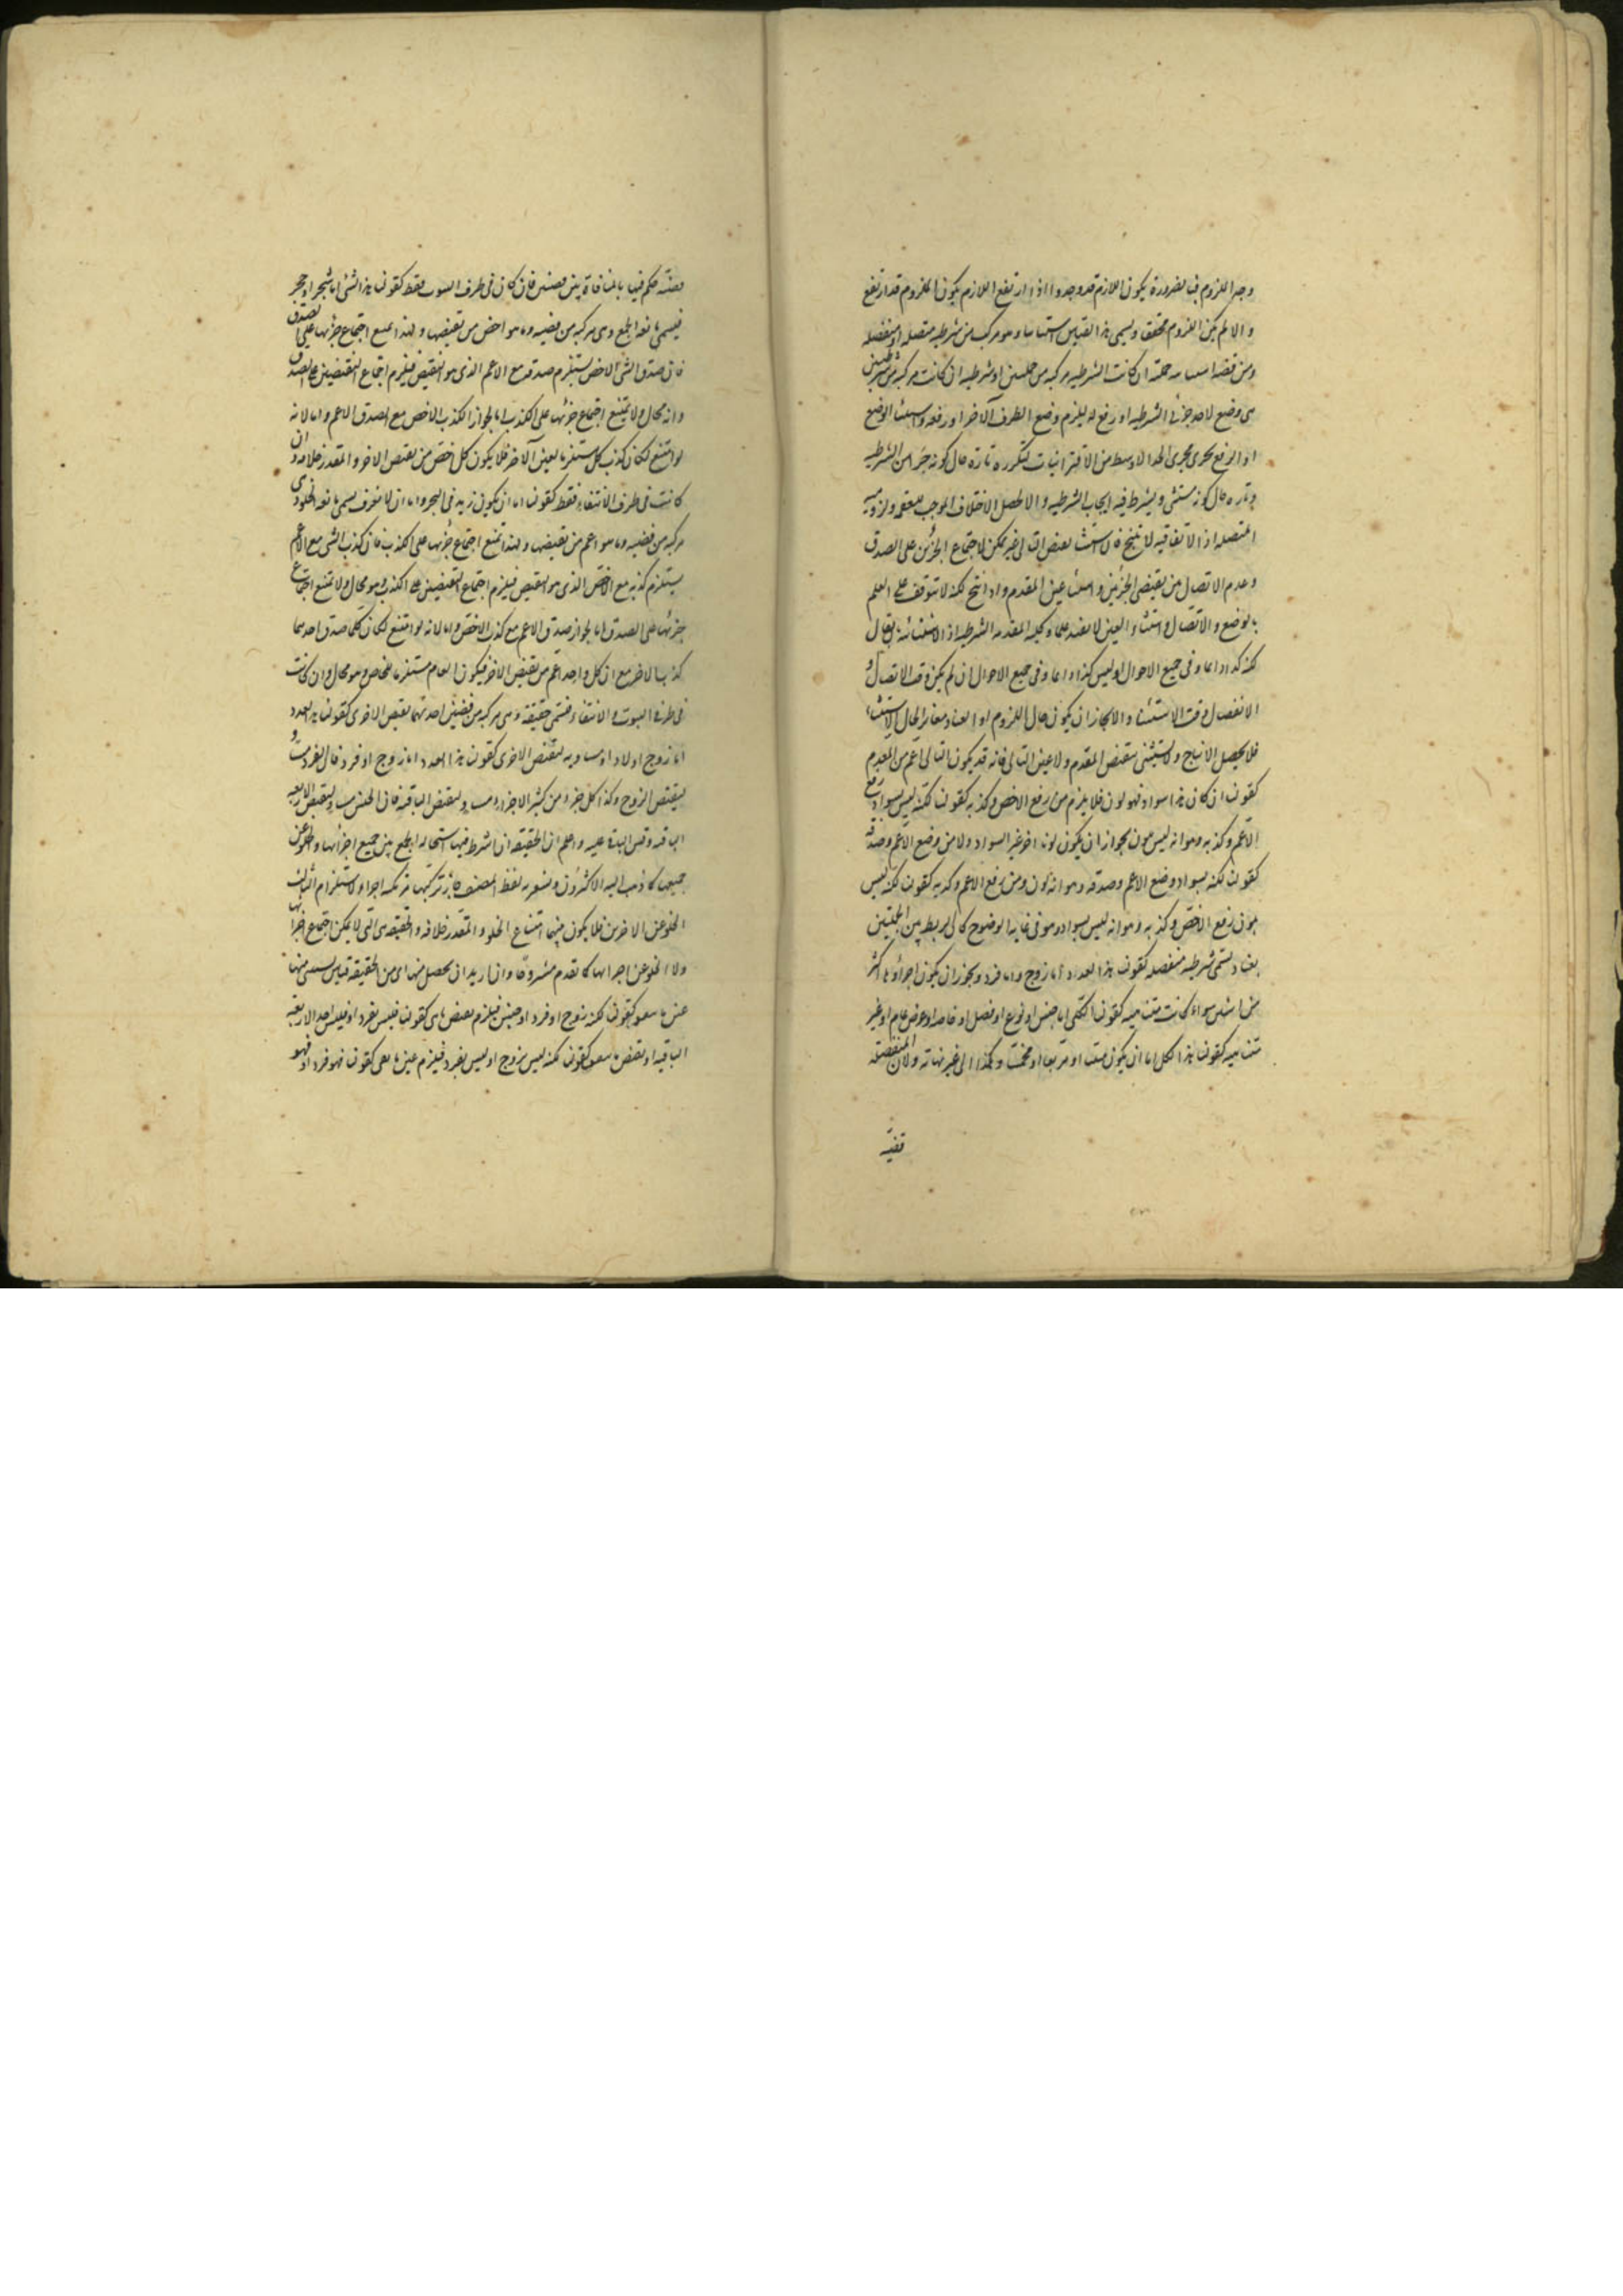 وجد الملزوم فبالضرورة يكون اللازم قد وجد واذا ارتفع اللازم يكون الملزوم قد ارتفع
والا لم يكن اللزوم محققا ويسمى هذا القياس استثنائيا وهو مركب من شرطية متصلة او منفصلة
ومن قضية استثنائية حملية ان كانت الشرطية مركبة من حمليتين او شرطية ان كانت مركبة من شرطيتين
هى وضع لاحد جزئى الشرطية او رفع له ليلزم وضع الطرف الآخر او رفعه واستثناء الوضع
او الرفع يجرى مجرى الحد الاوسط من الاقترانيات لتكرره تارة حال كونه جزءا من الشرطية
وتارة حال كونه مستثنى ويشترط فيه ايجاب الشرطية والا لحصل الاختلاف الموجب للعقم ولزومية
المتصلة اذ الاتفاقية لا تنتج فان استثناء نقيض التالى غير ممكن لاجتماع الجزئين على الصدق
وعدم الاتصال من نقيضى الجزئين واستثناء عين المقدم وان انتج لكنه لا تتوقف على العلم
بالوضع والاتصال واستثناء العين لا يفيد علما وكلية المقدمة الشرطية او الاستثنائية بان يقال
لكنه كذا دائما وفى جميع الاحوال او ليس كذا دائما وفى جميع الاحوال ان لم يكن وقت الاتصال و
الانفصال وقت الاستثناء والا لجاز ان يكون حال اللزوم او العناد مغايرا لحال الاستثناء
فلا يحصل الانتاج ولا يستثنى نقيض المقدم ولا عين التالى فانه قد يكون التالى اعم من المقدم
كقولنا ان كان هذا سوادا فهو لون فلا يلزم من رفع الاخص وكذبه كقولنا لكنه ليس بسواد رفع
الاعم وكذبه وهو انه ليس بلون لجواز ان يكون لونا اخر غير السواد ولا من وضع الاعم وصدقه
كقولنا لكنه بسواد وضع الاعم وصدقه وهو انه لون ومن رفع الاعم وكذبه كقولنا لكنه ليس
بلون رفع الاخص وكذبه وهو انه ليس بسواد وهو فى غاية الوضوح كالربط بين الجملتين
بعناد يسمى شرطية منفصلة كقولنا هذا العدد اما زوج واما فرد ويجوز ان يكون اجزاؤها اكثر
من اثنين سواء كانت متناهية كقولنا الكلى اما جنس او نوع او فصل او خاصة او عرض عام او غير
متناهية كقولنا هذا الكل اما ان يكون مثلثا او مربعا او مخمسا وهكذا الى غير نهاية ولان المنفصلة
قضية
قضية حكم فيها بالمنافاة بين قضيتين فان كان فى طرف الثبوت فقط كقولنا هذا الشئ اما شجر او حجر
فيسمى مانعة الجمع وهى مركبة من قضية وما هو اخص من نقيضها ولهذا يمتنع اجتماع جزئيها على الصدق
فان صدق الشئ الاخص يستلزم صدقه مع الاعم الذى هو النقيض فيلزم اجتماع النقيضين على الصدق
وانه محال ولا يمتنع اجتماع جزئيها على الكذب اما لجواز الكذب الاخص مع الصدق الاعم واما لانه
لو امتنع لكان كذب كل مستلزما لعين الآخر فلا يكون كل اخص من نقيض الاخر والمقدر خلافه وان
كانت فى طرف الانتفاء فقط كقولنا اما ان يكون زيد فى البحر واما ان لا يغرف يسمى مانعة الخلو وهى
مركبة من قضية وما هو اعم من نقيضها ولهذا يمتنع اجتماع جزئيها على الكذب فان كذب الشئ مع الاعم
يستلزم كذبه مع الاخص الذى هو النقيض فيلزم اجتماع النقيضين على الكذب وهو محال ولا تمتنع اجتماع
جزئيها على الصدق اما لجواز صدق الاعم مع كذب الاخص واما لانه لو امتنع لكان كلما صدق احدهما
كذب الاخر مع ان كل واحد اعم من نقيض الاخر فيكون العام مستلزما للخاص وهو محال وان كانت
فى طرفى الثبوت والانتفاء فتسمى حقيقية وهى مركبة من قضيتين احدتهما نقيض الاخرى كقولنا هذا العدد
اما زوج او لا واما مساوية لنقيض الاخرى كقولنا هذا العدد اما زوج او فرد فان الفرد مساو
لنقيض الزوج وكذا كل جزء من كثير الاجزاء مساو لنقيض الباقية فان الجنس مساو لنقيض الاربعة
الباقية وقس البقية عليه واعلم ان الحقيقية ان اشترط فيها استحالة الجمع بين جميع اجزائها والخلو عن
جميعها كما ذهب اليه الاكثرون ويشعر به لفظ المصنف جاز تركبها من ثلثة اجزاء ولاستلزام الثالث
الخلو عن الاخرين فلا يكون بينهما امتناع الخلو والمقدر خلافه والحقيقية هى التى لا يمكن اجتماع اجزائها
ولا الخلو عن اجزائها كما تقدم مشروحا وان اريد ان يحصل منها اى من الحقيقية قياس يستثنى منها
عين ما يتفق كقولنا لكنه زوج او فرد او جنس فيلزم نقيض ما بقى كقولنا فليس بفرد او فليس احد الاربعة
الباقية او نقيض ما يتفق كقولنا لكنه ليس بزوج او ليس بفرد فيلزم عين ما بقى كقولنا فهو فرد او فهو